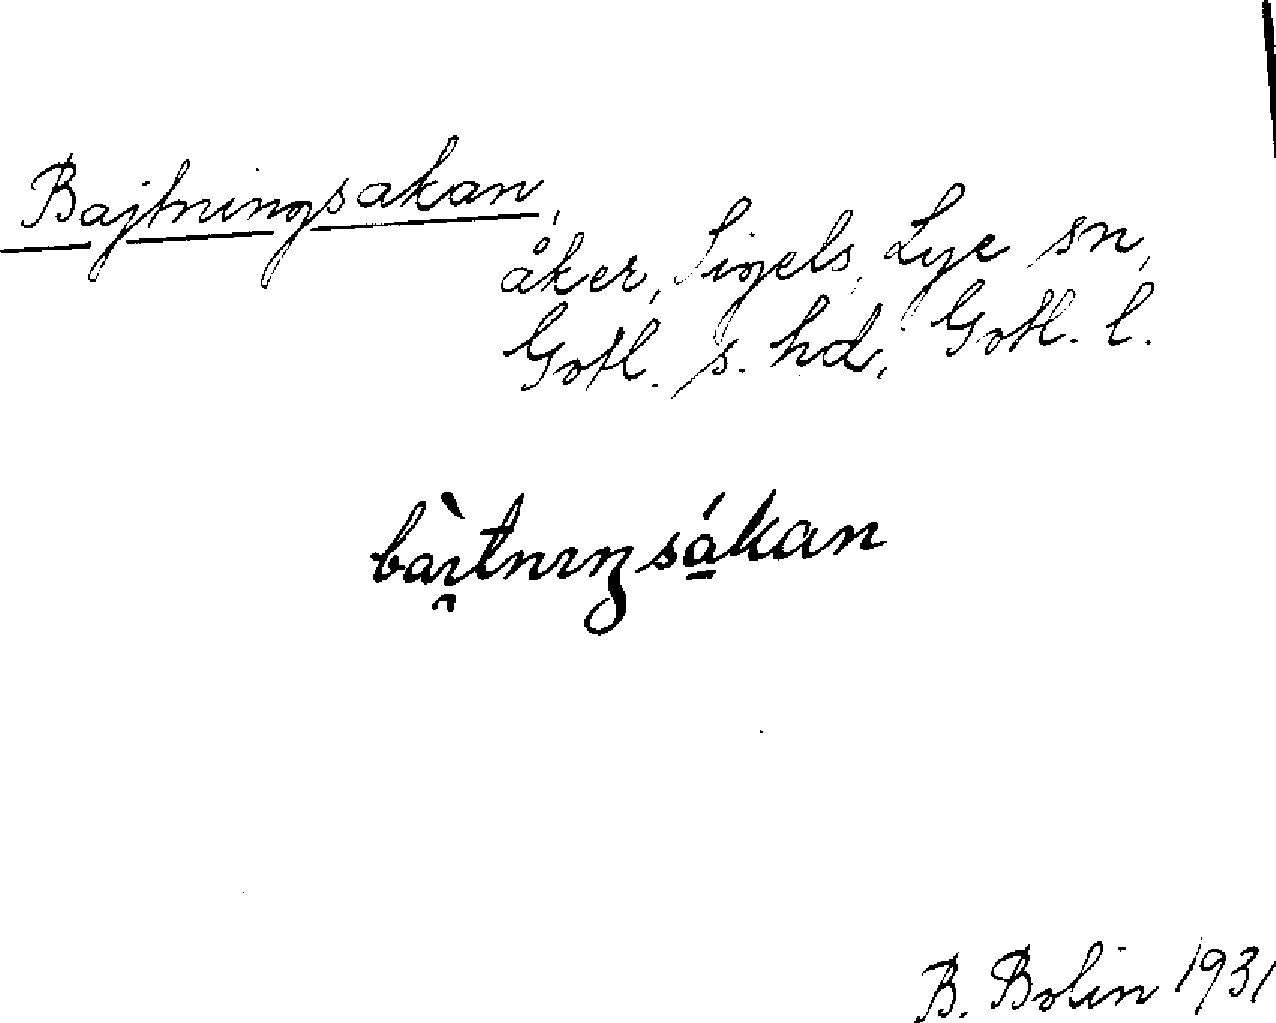 Bajtningsakan,
åker, Sigels, Lye sn,
Gotl. s. hd, Gotl. l.
bàɪ̯tnɪŋsá̱kan
B. Bolin 1931